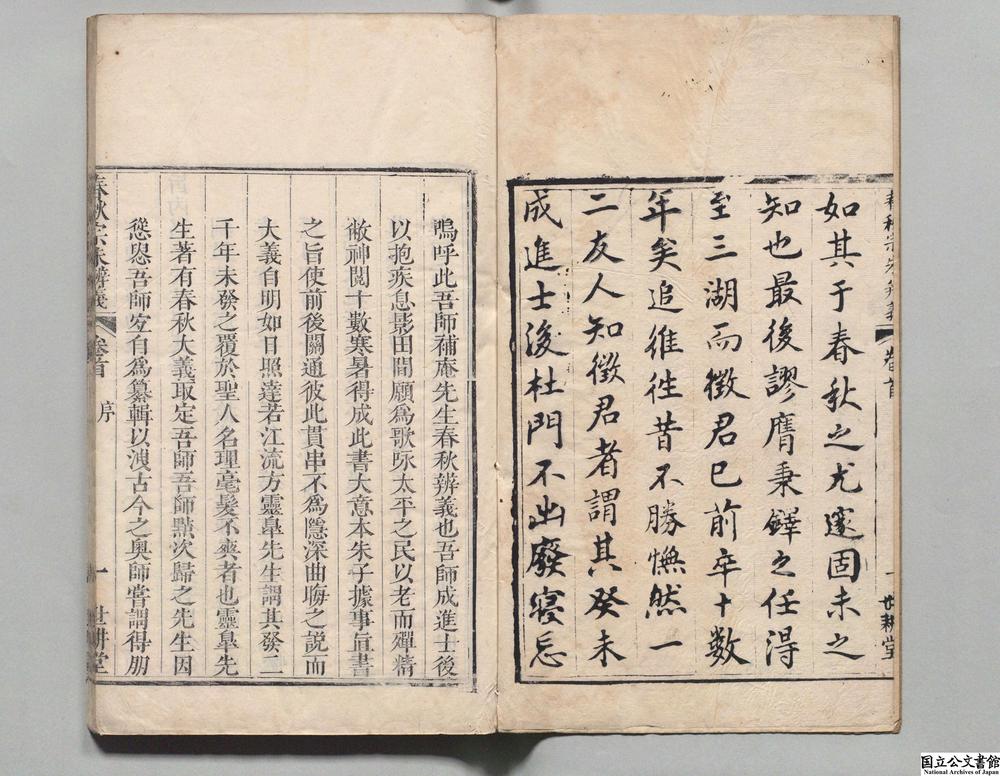 春秋宗朱辨義
卷首
一
世耕堂
如其于春秋之尤邃固未之
知也最後謬膺秉鐸之任得
至三湖而徵君已前卒十數
年矣追維徃昔不勝憮然一
二友人知徵君者謂其癸未
成進士後杜門不出廢寢忘
嗚呼此吾師補庵先生春秋辨義也吾師成進士後
以抱疾息影田間願爲歌咏太平之民以老而殫精
敝神閲十數寒暑得成此書大意本朱子據事直書
之旨使前後關通彼此貫串不爲隱深曲晦之説而
大義自明如日照逵若江流方靈臯先生謂其發二
千年未發之覆於聖人名理毫髮不爽者也靈臯先
生著有春秋大義取定吾師吾師點次歸之先生因
慫恿吾師岁自爲纂輯以洩古今之奥師嘗謂得朋
春秋宗朱辨義
卷首
序
一
世耕堂
国立公文書館
National Archives of Japan